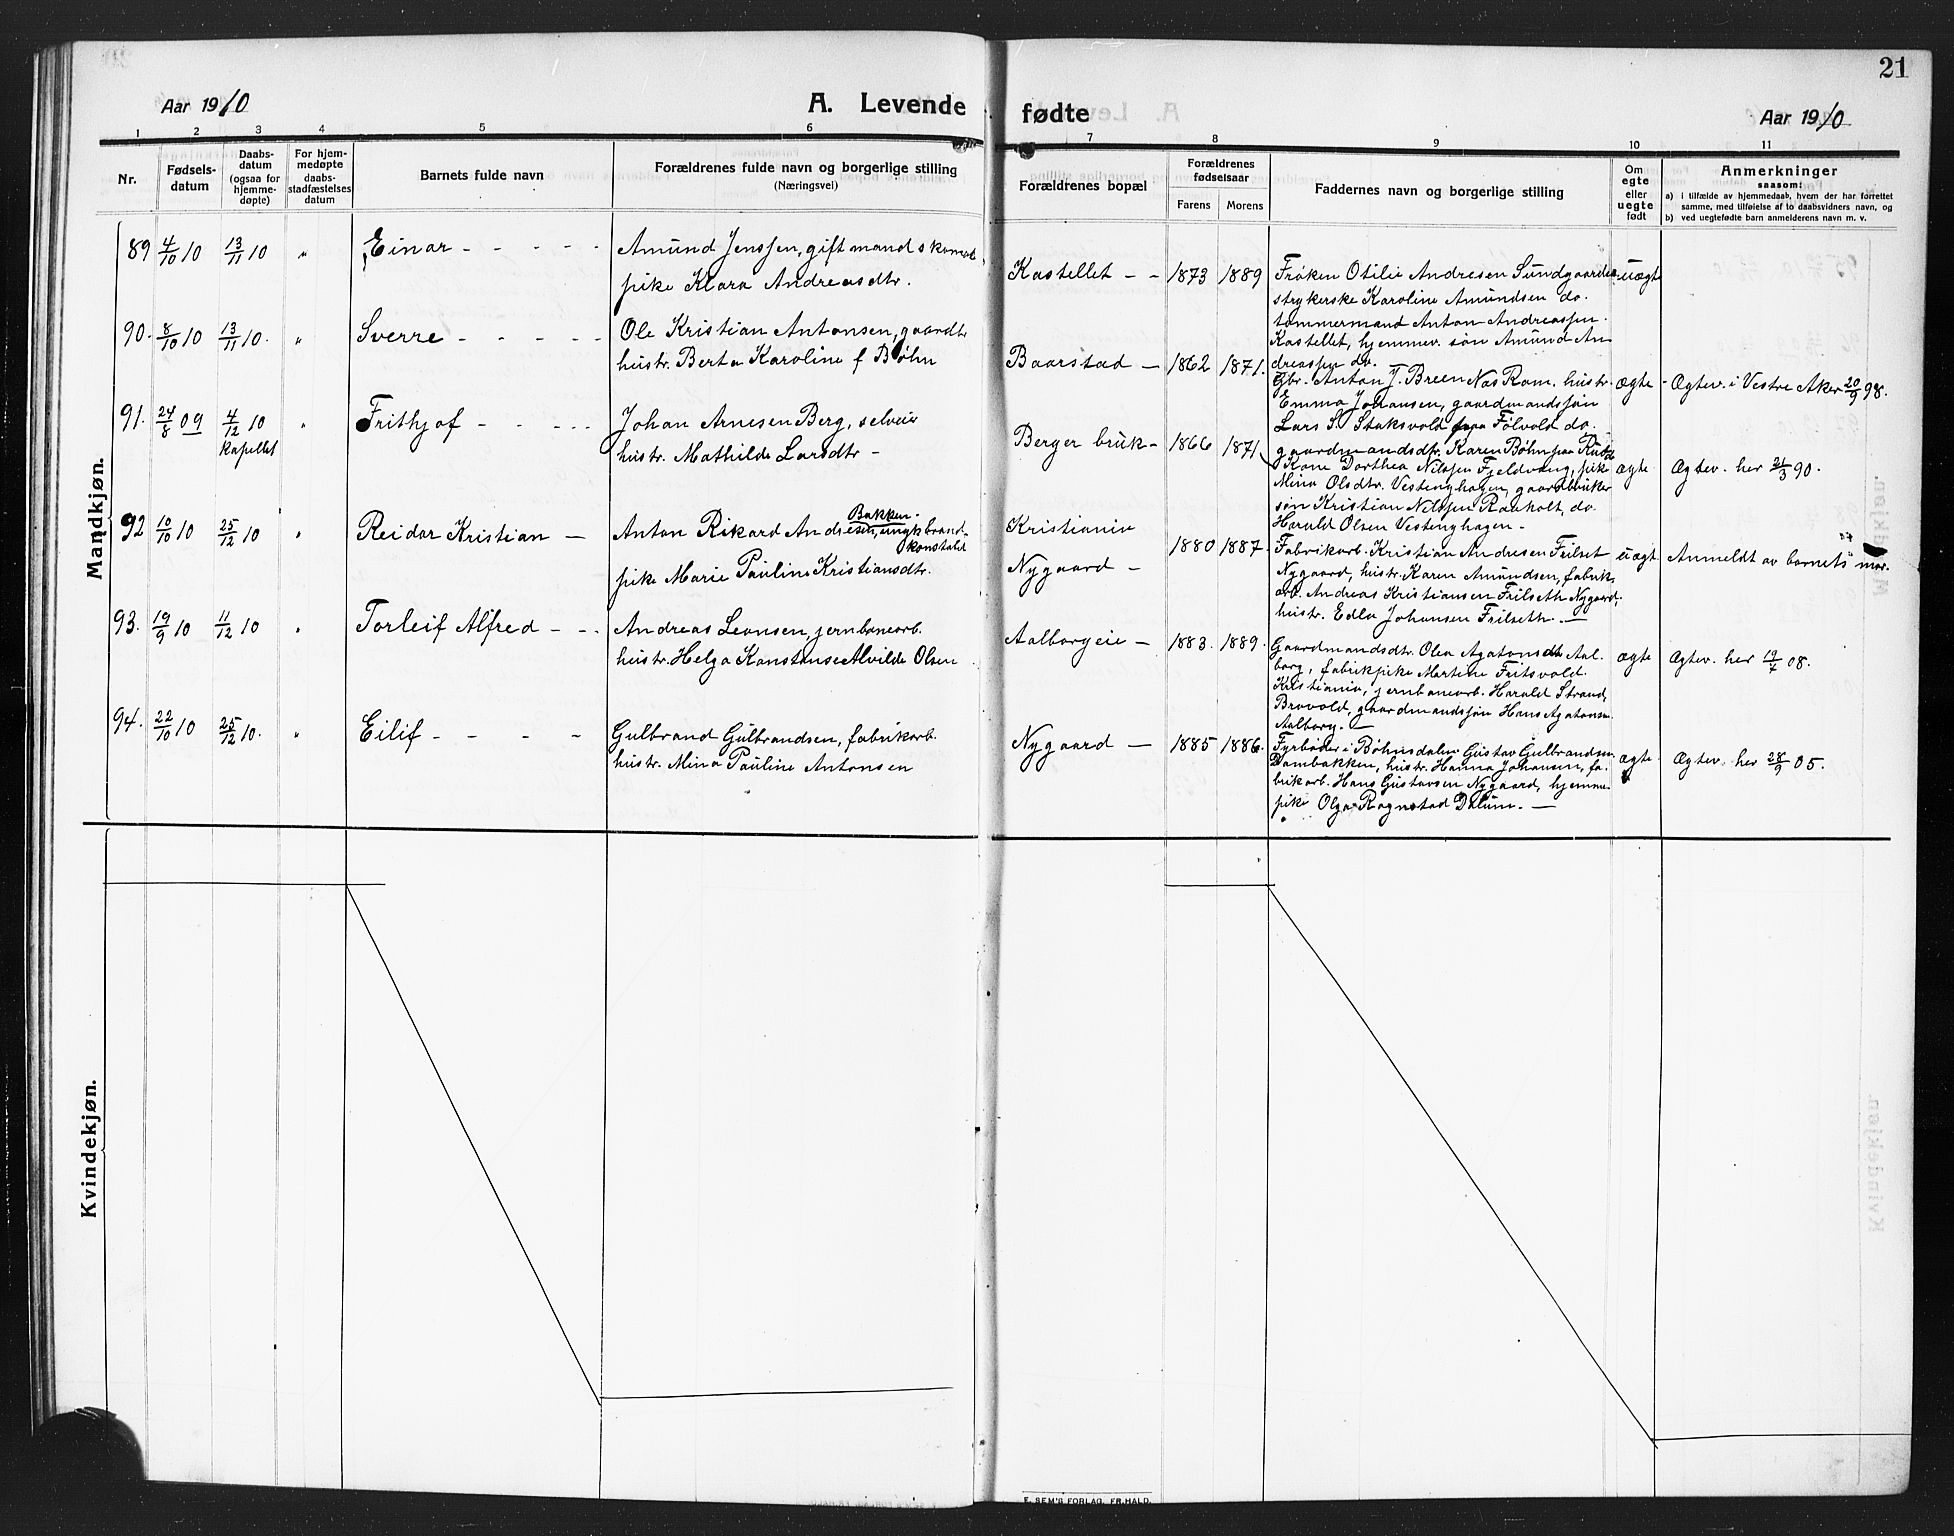 21
Aar 1910
A. Levende fødte
Aar 1910
1 2 3 4 5 6 7 8 9 10 11
Nr.
Fødsels-
datum
Daabs-
datum
(ogsaa for
hjemme-
døpte)
For hjem-
medøpte
daabs-
stadfæstelses
datum
Barnets fulde navn
Forældrenes fulde navn og borgerlige stilling
(Næringsvei)
Forældrenes bopæl
Forældrenes
fødselsaar
Farens Morens
Faddernes navn og borgerlige stilling
Om
egte
eller
uegte
født
Anmerkninger
saasom:
a) i tilfælde av hjemmedaab, hvem der har forrettet
samme, med tilføielse af to daabsvidners navn, og
b) ved uegtefødte barn anmelderens navn m. v.
Mandkjøn.
89 4/10 10 13/11 10 " Einar - - - - -
Amund Jenssen, gift mand skomak
pike Klara Andreasdtr.
Kastellet - - 1873 1889
Frøken Otilie Andresen Sundgaarden
strykerske Karoline Amundsen do.
tømmermand Anton Andreassen
Kastellet, hjemmev. søn Amund An
dreassen do.
uægte
90. 8/10 10 13/11 10. " Sverre - - - - -
Ole Kristian Antonsen, gaardbr
hustr. Berta Karoline f Bøhn
Baarstad - 1862 1871.
Gbr. Anton J. Breen Nas Rom. hustr.
Emma Johansen, gaardmandssøn
Lars S. Staksvold fra Fölvold do.
gaardmandsdtr. Karen Bøhn paa Rud
ægte - Ægtev. i Vestre Aker 20/9 98.
91. 24/8 09 4/12 10 " Frithjof - - - - -
Kapellet
Johan Arnesen Berg, selveier
hustr. Mathilde Larsdtr -
Berger bruk - 1866 1871
Kone Dorthea Nilssen Fjeldvang, pike
Mina Olsdtr. Vestenghagen, gaardbruker
søn Kristian Nilssen Raaholt, do.
Harald Olsen Vestenghagen -
ægte Ægtev. her 21/3 90.
92 10/10 10 25/12 10 " Reidar Kristian -
Bakken -
Anton Rikard Andresen, ungk brand-
konstabel
pike Marie Pauline Kristiansdtr.
Kristiania
Nygaard - 1880 1887.
Fabrikarb. Kristian Andresen Frilset
Nygaard, hustr. Karen Amundsen, fabrik
arb. Andreas Kristiansen Frilseth Nygaard,
hustr. Edla Johansen Frilseth. -
uægt Anmeldt av barnets mor.
93. 19/9 10 11/12 10 " Torleif Alfred - - -
Andreas Leonsen, jernbanearb.
hustr. Helga Konstanse Alvilde Olsen
Aalborgeie - 1883. 1889.
Gaardmandsdtr. Olea Agatonsdtr Aal.
borg, fabrikpike Martine Fritsvold
Kristiania, jernbanearb. Harald Strand,
Brovold, gaardmandssøn Hans Agatonsen
Aalborg. -
ægte Ægtev. her 19/7 08.
94. 22/10 10 25/12 10. " Eilif - - - -
Gulbrand Gulbrandsen, fabrikarb.
hustr. Mina Pauline Antonsen
Nygaard - 1885 1886.
Fyrbøder i Bøhnsdalen Gustav Gulbrandsen
Dambakken, hustr. Hanna Johansen, fa-
brikarb. Hans Gustavsen Nygaard, hjemme
pike Olga Ragnstad Dalum. -
ægte Ægtev. her 28/9 05.
Kvindekjøn.
E. SEM'S FORLAG, FR.HALD.